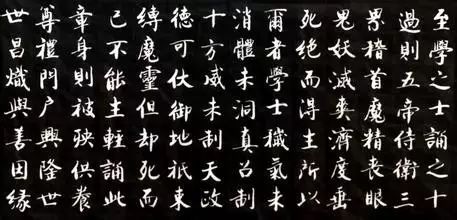 至學之士誦之十
過則五帝侍衛三
界稽首魔精喪眼
鬼妖滅爽濟度垂
死絕而得生所以
爾者學士穢氣未
消體未洞真召制
十方威未制天政
德可伏御地祇束
縛魔靈但却死而
已不能生輕誦此
章身則被殃供養
尊禮門戶興隆世
世昌熾與善因緣